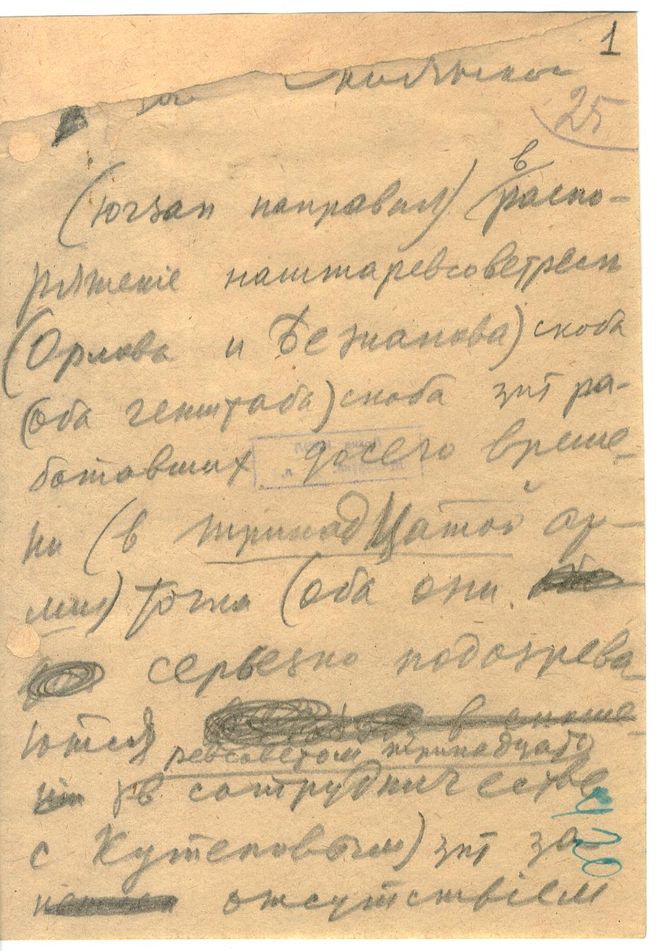 1
25
(югзап направил) в распо-
ряжение наштаревсоветресп
(Орлова и Безманова) скоба
(оба генштаба) скоба зпт ра-
ботавших досего време-
ни (в тринадцатой ар-
мии) точка (оба они
серьезно подозрева-
ются
ревсоветом тринадцать
в сотрудничестве
с Кутеповым) зпт за
отсутствием